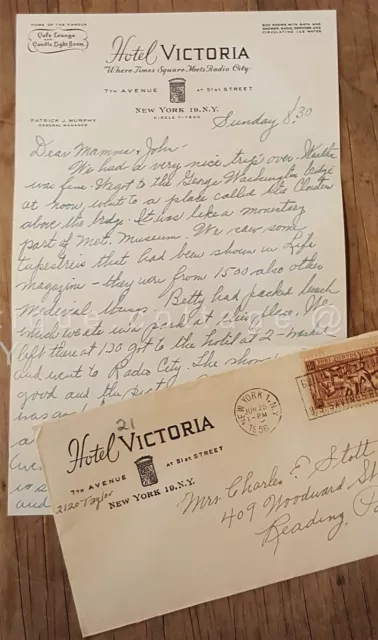 HOME OF THE FAMOUS
Cafe Lounge
and
Candle Light Room
600 ROOMS WITH BATH AND
SHOWER, RADIO, SERVIDOR AND
CIRCULATING ICE WATER
Hotel VICTORIA
Where Times Square Meets Radio City
7TH AVENUE AT 51ST STREET
NEW YORK 19, N.Y.
CIRCLE 7-7800
PATRICK J. MURPHY
GENERAL MANAGER
Sunday 8:30
Dear Mamme & John -
We had a very nice trip over. Weather
was fine. We got to the George Washington bridge
at noon, went to a place called the Cloisters
above the bridge. It was like a monastery
part of Met. Museum. We saw some
tapestries that had been shown in Life
magazine - they were from 1500 also other
Medieval things. Betty had packed lunch
which we ate in a park at
left there at 1:30 got to the hotel at 2 - washed
and went to Radio City. The show
good and the
was
and
21
Hotel VICTORIA
7TH AVENUE AT 51ST STREET
NEW YORK 19, N.Y.
2120 Taylor
NEW YORK 1, N.Y.
JUN 25
1 - PM
1956
Mrs. Charles E. Stott
409 Woodward St
Reading, Pa